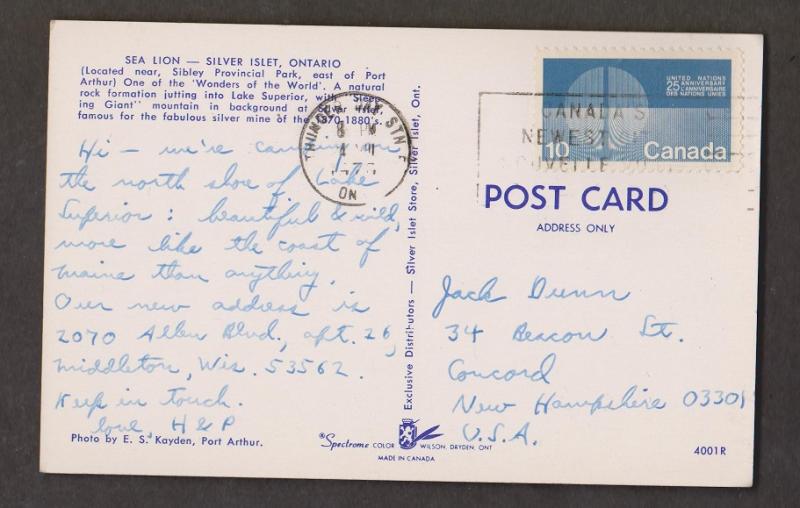 SEA LION — SILVER ISLET, ONTARIO
(Located near, Sibley Provincial Park, east of Port
Arthur) One of the 'Wonders of the World'. A natural
rock formation jutting into Lake Superior, with "Sleep-
ing Giant" mountain in background at Silver Islet,
famous for the fabulous silver mine of the 1870-1880's.
Hi - we're
the north shore of Lake
Superior: beautiful & wild,
more like the coast of
Maine than anything.
Our new address is
2070 Allen Blvd., apt. 26,
Middleton, Wis. 53562.
Keep in touch.
Love, H & P
Photo by E. S. Kayden, Port Arthur.
Exclusive Distributors — Silver Islet Store, Silver Islet, Ont.
®Spectrome COLOR
WILSON, DRYDEN, ONT
MADE IN CANADA
THUNDER BAY STN F
8 PM
4
ON
CANADA'S
NEWEST
UNITED NATIONS
25e ANNIVERSARY
L'ANNIVERSAIRE
DES NATIONS UNIES
10 Canada
POST CARD
ADDRESS ONLY
Jack Dunn
34 Beacon St.
Concord
New Hampshire 03301
U.S.A.
4001R